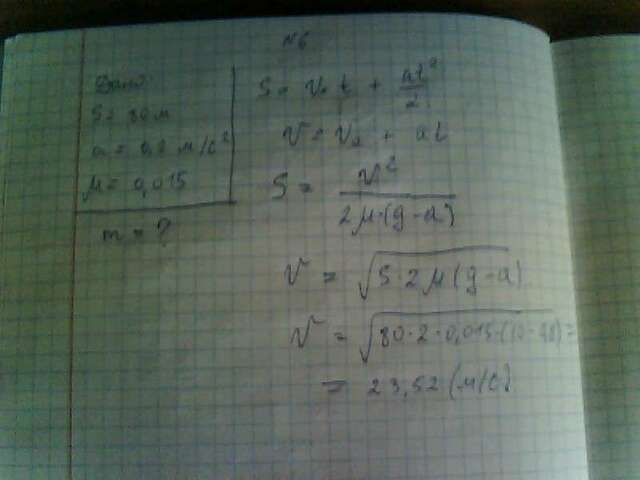 №6
Дано:
S = 80 м
a = 0,2 м/с²
μ = 0,015
m = ?
S = V₀ t + at²/2
V = V₀ + at
S = V²/2μ·(g-a)
V = √S·2μ(g-a)
V = √80·2·0,015·(10-0,2) =
= 23,52 (м/с)